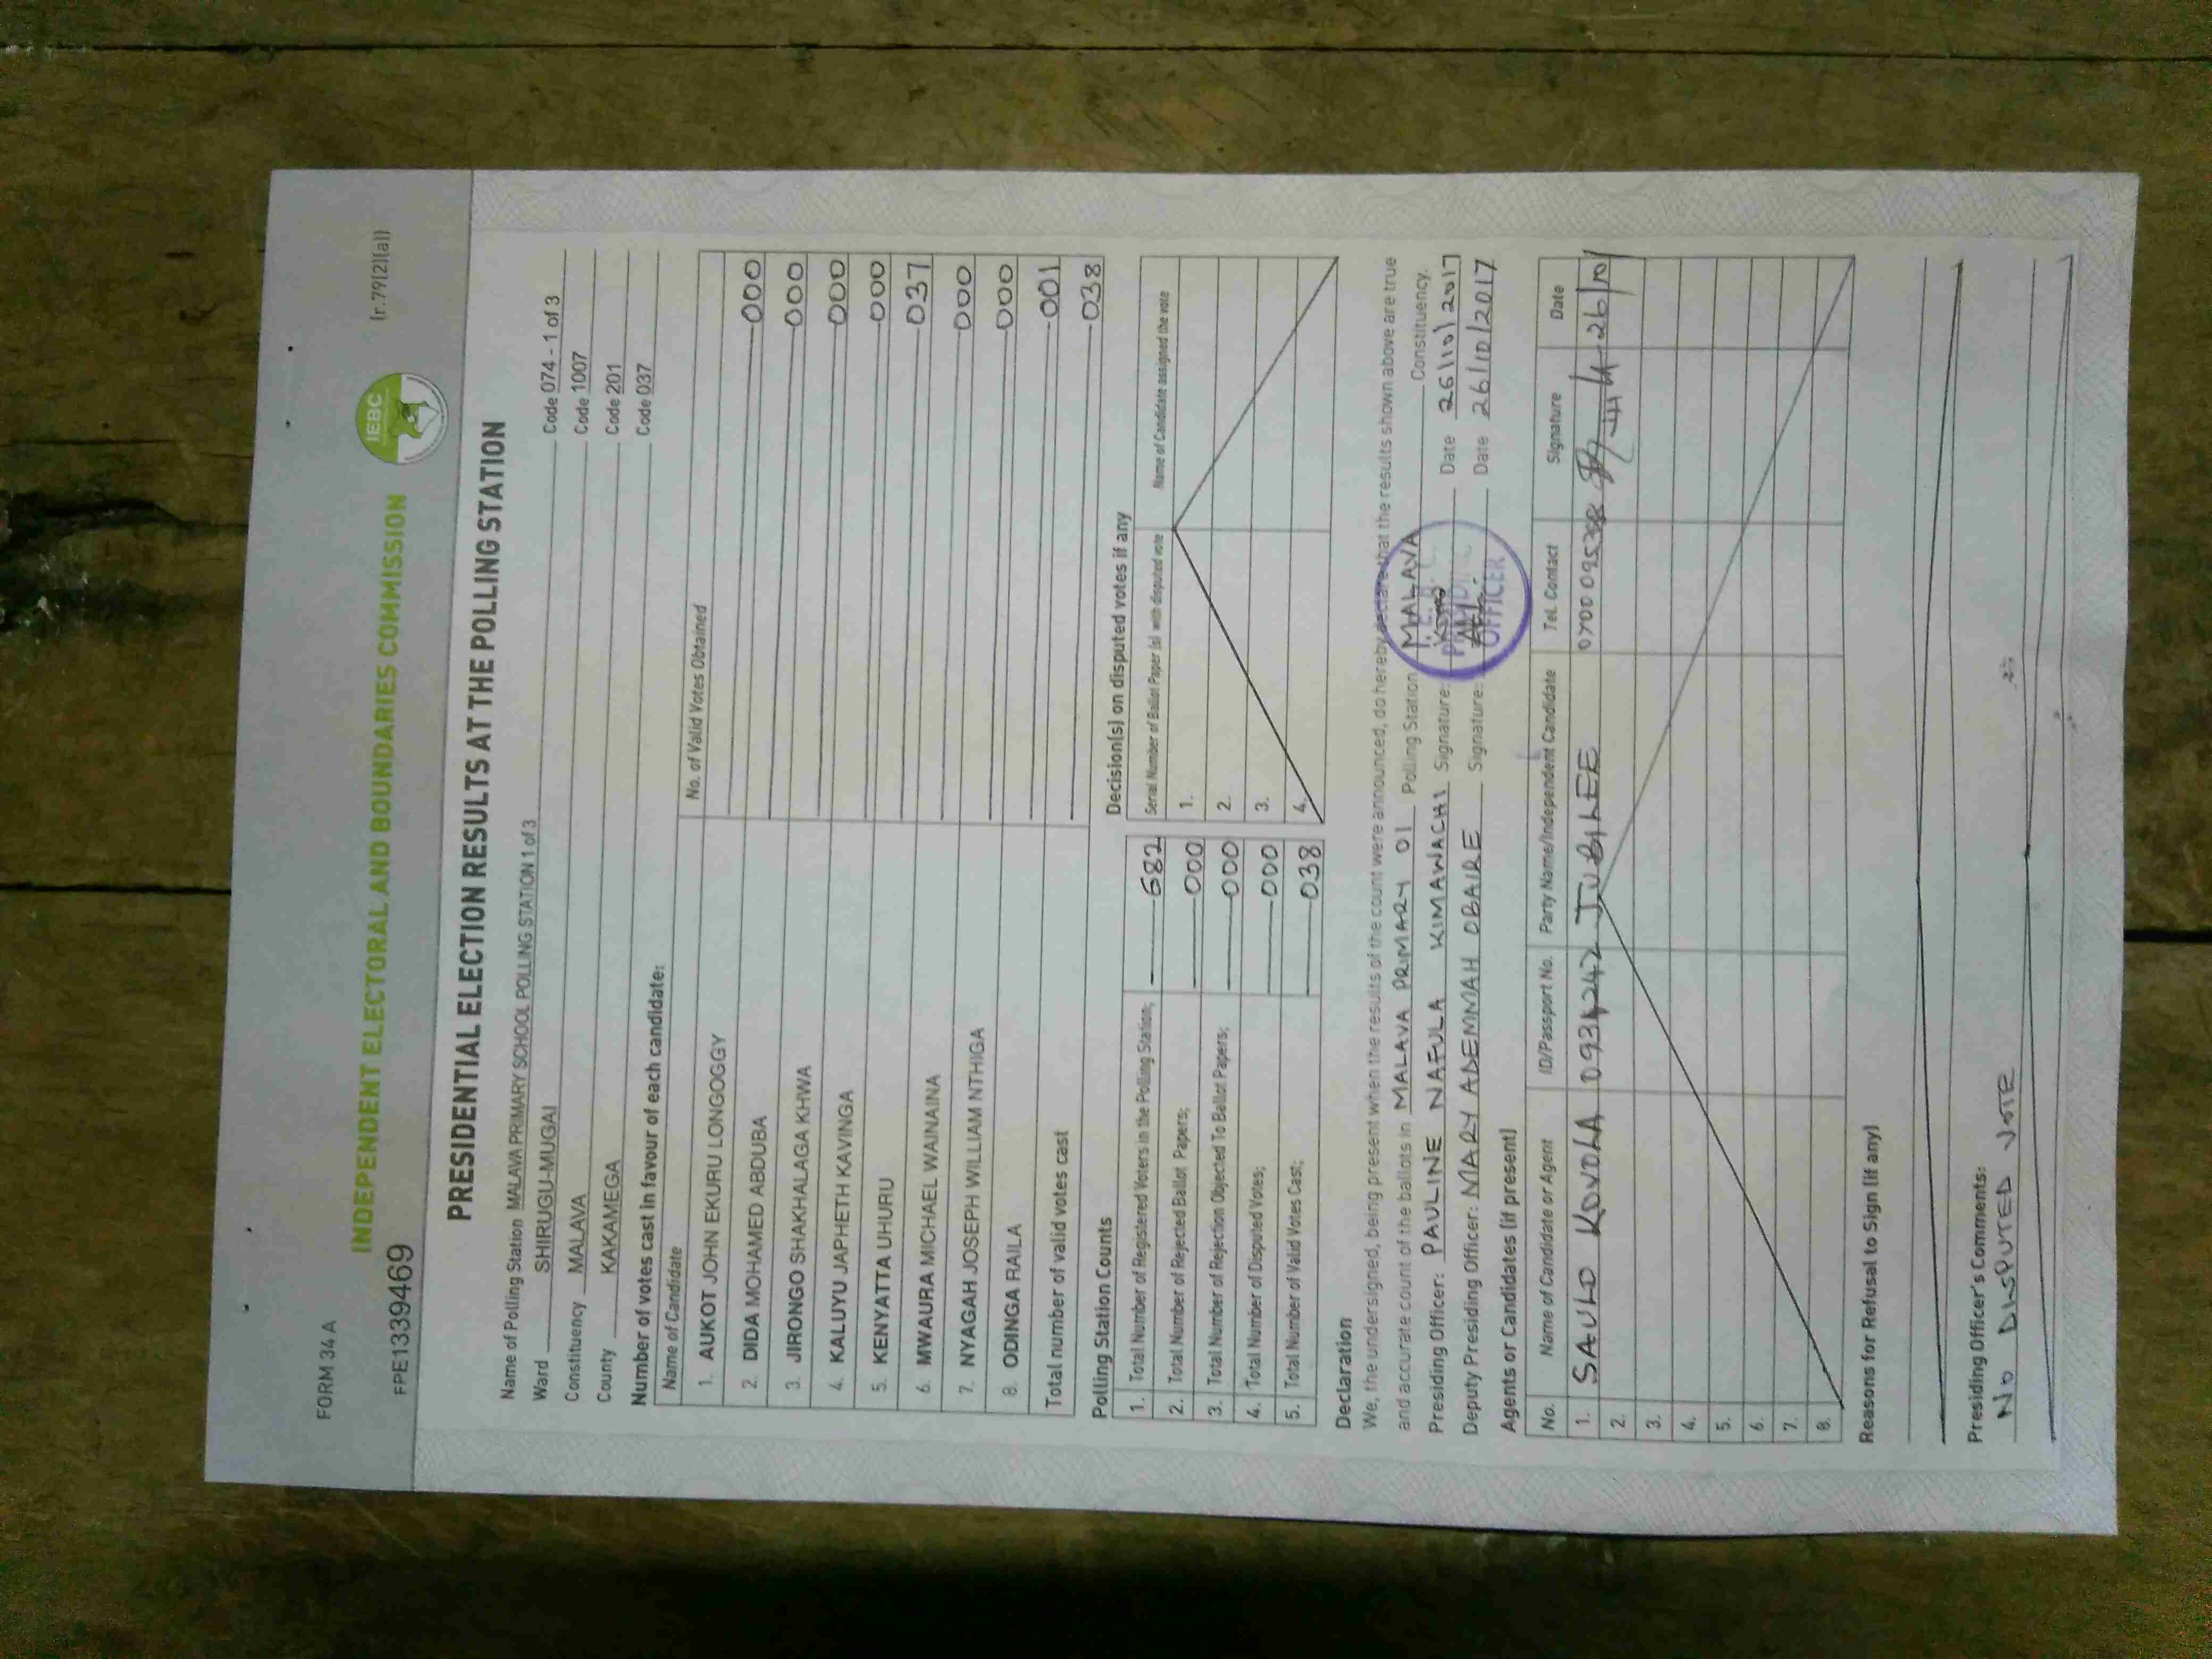 FORM 34 A
(r.79(2)(a))
INDEPENDENT ELECTORAL AND BOUNDARIES COMMISSION
IEBC
FPE1339469
PRESIDENTIAL ELECTION RESULTS AT THE POLLING STATION
Name of Polling Station MALAVA PRIMARY SCHOOL POLLING STATION 1 of 3 Code 074 - 1 of 3
Ward SHIRUGU-MUGAI Code 1007
Constituency MALAVA Code 201
County KAKAMEGA Code 037
Number of votes cast in favour of each candidate:
Name of Candidate No. of Valid Votes Obtained
1. AUKOT JOHN EKURU LONGOGGY 000
2. DIDA MOHAMED ABDUBA 000
3. JIRONGO SHAKHALAGA KHWA 000
4. KALUYU JAPHETH KAVINGA 000
5. KENYATTA UHURU 037
6. MWAURA MICHAEL WAINAINA 000
7. NYAGAH JOSEPH WILLIAM NTHIGA 000
8. ODINGA RAILA 001
Total number of valid votes cast 038
Polling Station Counts
1. Total Number of Registered Voters in the Polling Station; 682
2. Total Number of Rejected Ballot Papers; 000
3. Total Number of Rejection Objected To Ballot Papers; 000
4. Total Number of Disputed Votes; 000
5. Total Number of Valid Votes Cast; 038
Decision(s) on disputed votes if any
Serial Number of Ballot Paper (s) with disputed vote Name of Candidate assigned the vote
1.
2.
3.
4.
Declaration
We, the undersigned, being present when the results of the count were announced, do hereby declare that the results shown above are true
and accurate count of the ballots in MALAVA PRIMARY 01 Polling Station MALAVA Constituency.
Presiding Officer: PAULINE NAFULA KIMAWACHI Signature: Date 26/10/2017
Deputy Presiding Officer: MARY ADEMMAH OBAIRE Signature: Date 26/10/2017
OFFICER
Agents or Candidates (if present)
No. Name of Candidate or Agent ID/Passport No. Party Name/Independent Candidate Tel. Contact Signature Date
1. SAULO JUBILEE 26/10/
2.
3.
4.
5.
6.
7.
8.
Reasons for Refusal to Sign (if any)
Presiding Officer's Comments:
No DISPUTED VOTE